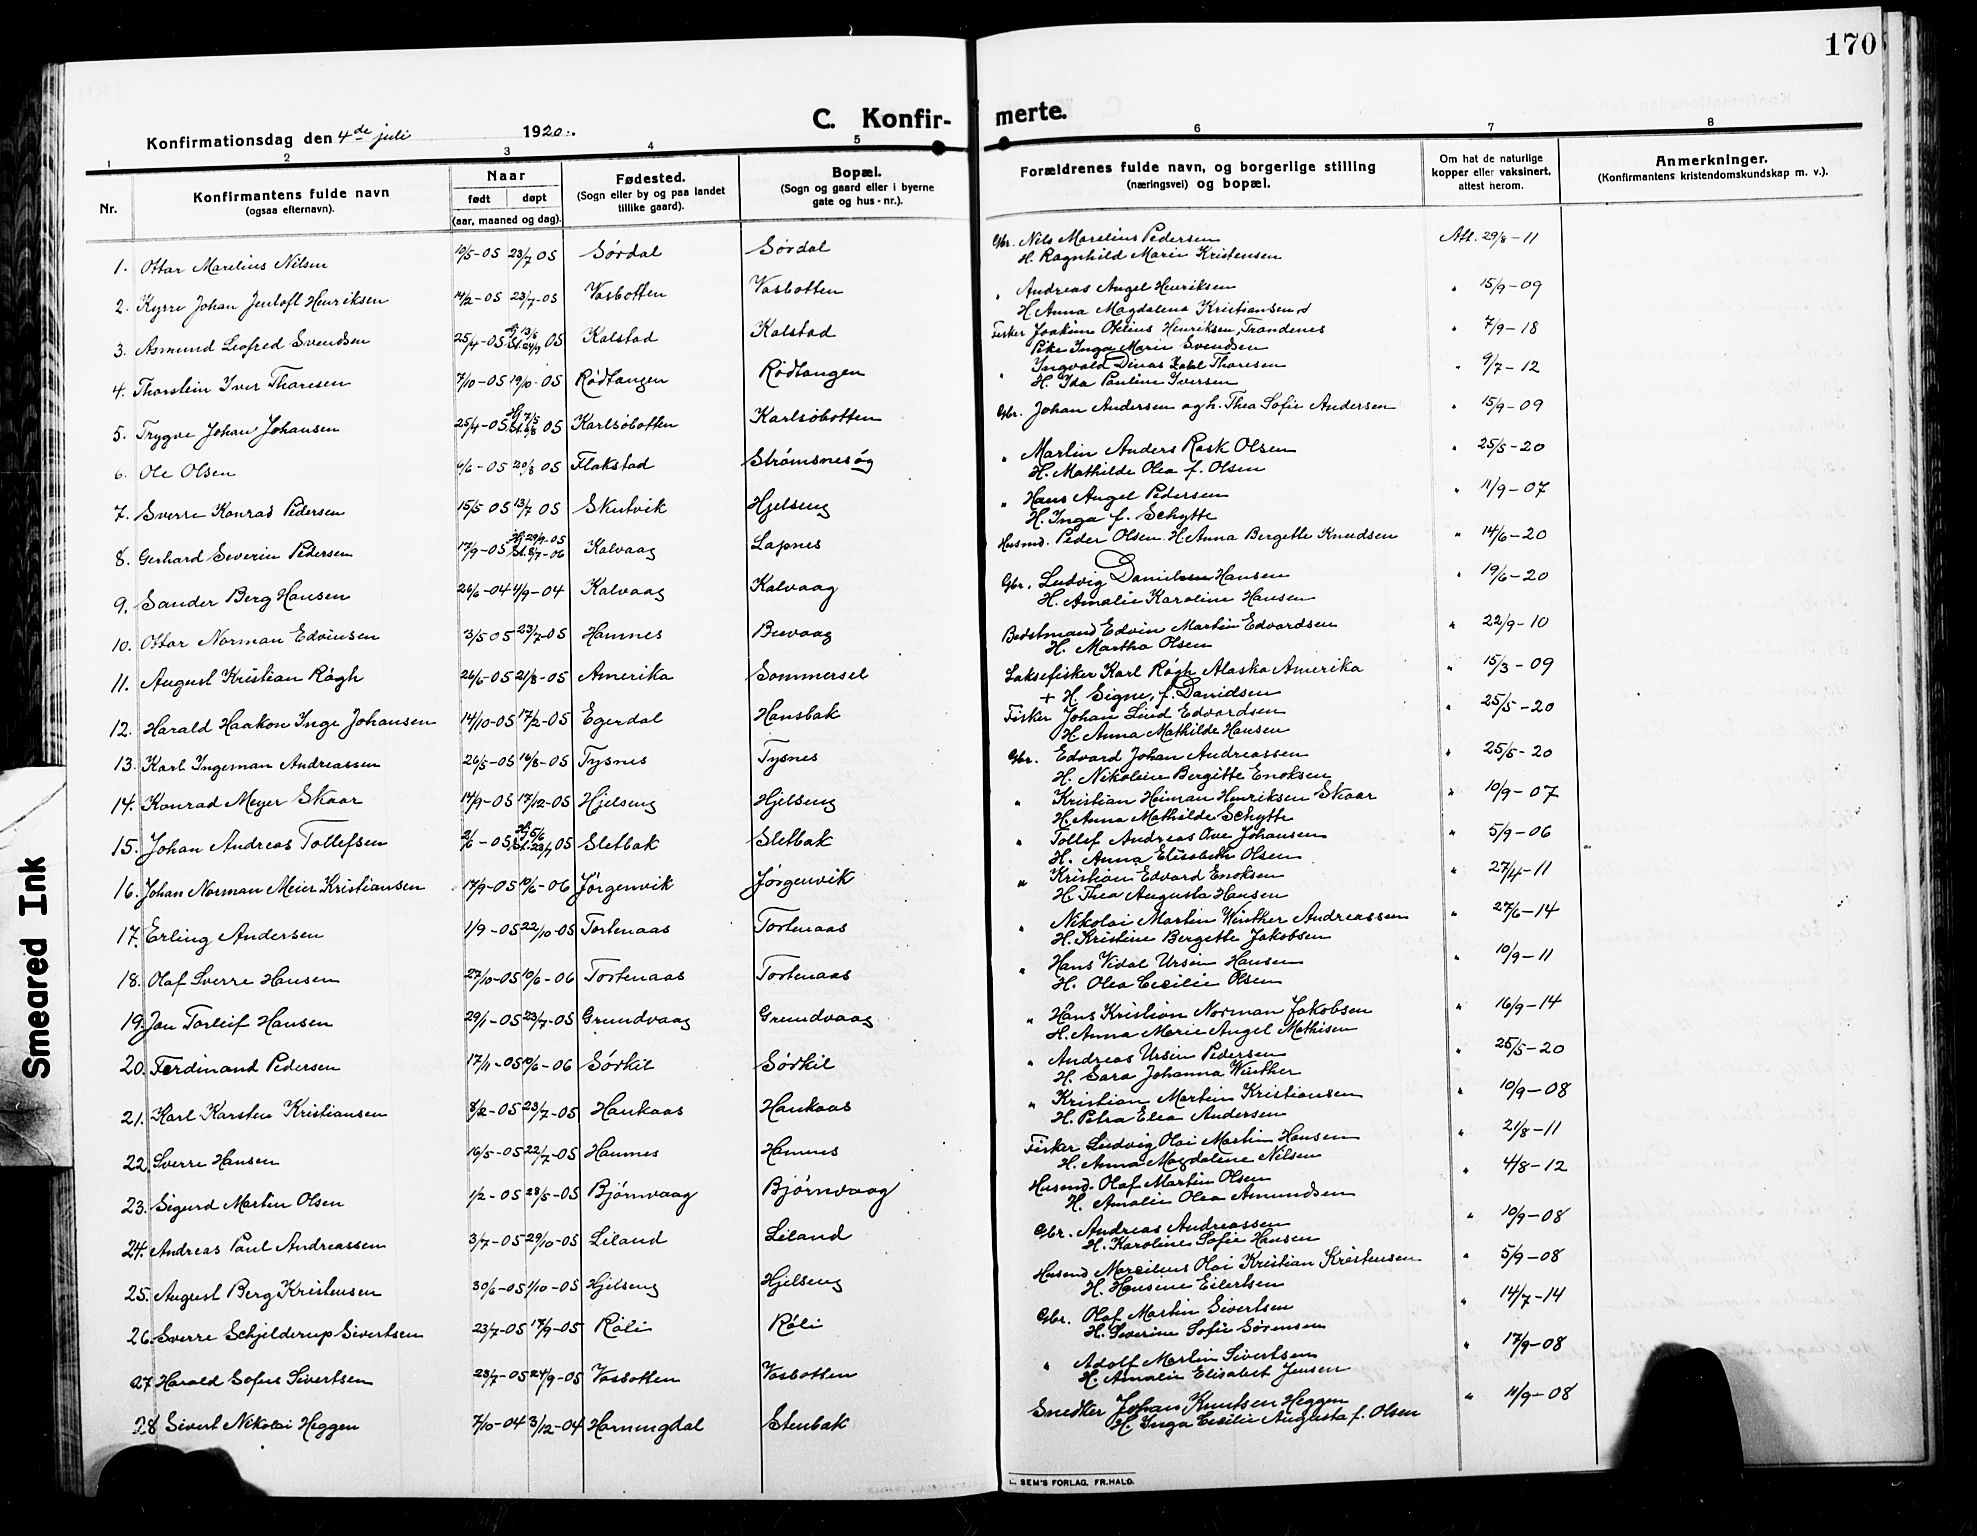 170
Konfirmationsdag den 4de juli 1920.
C. Konfirmerte.
1 2 3 4 5 6 7 8
Nr.
Konfirmantens fulde navn (ogsaa efternavn).
Naar født døpt (aar, maaned og dag).
Fødested. (Sogn eller by og paa landet tillike gaard).
Bopæl. (Sogn og gaard eller i byerne gate og hus-nr.).
Forældrenes fulde navn, og borgerlige stilling (næringsvei) og bopæl.
Om hat de naturlige kopper eller vaksinert, attest herom.
Anmerkninger. (Konfirmantens kristendomskundskap m. v.).
1. Ottar Marelius Nilsen 19/5-05 23/7 05 Sørdal Sørdal Gbr. Nils Marelius Pedersen Att. 29/8-11
H. Ragnhild Marie Kristensen
2. Kyrre Johan Jentoft Henriksen 14/2-05 23/7-05 Vasbotten Vasbotten " Andreas Angel Henriksen " 15/9-09
H Anna Magdalena Kristiansen
3. Asmund Leofred Svendsen 25/4-05 Kalstad Kalstad Fisker Joakim Otelius Henriksen, Trandenes " 7/9-18
Pike Inga Marie Svendsen
4. Thorstein Iver Thoresen 7/10-05 19/10-05 Rødtangen Rødtangen " Ingvald Dinas Zahl Thoresen " 9/7-12
H. Ida Pauline Iversen
5. Trygve Johan Johansen 25/4-05 Hj 7/5 St. 6/8 05 Karlsøbotten Karlsøbotten Gbr. Johan Andersen og h. Thea Sofie Andersen " 15/9-09
6. Ole Olsen 6/6-05 20/8 05 Flakstad Strømsnesøg " Martin Anders Rask Olsen " 25/5-20
H. Mathilde Olea f. Olsen
7. Sverre Konrad Pedersen 15/5 05 13/7 05 Skutvik Hjelseng " Hans Angel Pedersen " 11/9-07
H. Inga f. Schytte
8. Gerhard Severin Pedersen 17/9-05 Kalvaag Lapnes Husmd. Peder Olsen. H. Anna Bergette Knudsen " 14/6-20
9. Sander Berg Hansen 26/6-04 4/9-04 Kalvaag Kalvaag Gbr. Ludvig Danielsen Hansen " 19/6-20
H. Amalie Karoline Hansen
10. Ottar Norman Edvinsen 3/5 05 23/7-05 Hamnes Buvaag Bedstmand Edvin Martin Edvardsen " 22/9-10
H. Martha Olsen
11. August Kristian Røgh 26/6-05 21/8-05 Amerika Sommersel Laksefisker Karl Røgh Alaska Amerika " 15/3-09
+ H Signe, f. Davidsen
12. Harald Haakon Inge Johansen 14/10-05 17/2-05 Egerdal Hansbak Fisker Johan Lind Edvardsen " 25/5-20
H Anna Mathilde Hansen
13. Karl Ingeman Andreassen 26/5-05 16/8-05 Tysnes Tysnes Gbr. Edvard Johan Andreassen " 25/5-20
H. Nikoline Bergitte Enoksen
14. Konrad Meyer Skaar 14/9-05 17/12-05 Hjelseng Hjelseng " Kristian Heiman Henriksen Skaar " 10/9-07
H. Anna Mathilde Schytte
15. Johan Andreas Tollefsen 2/6-05 Hj 5/6 St. 23/7 05 Sletbak Sletbak " Tollef Andreas Ove Johansen " 5/9-06
H. Anna Elisabeth Olsen
16. Johan Norman Meier Kristiansen 17/9-05 10/6-06 Jørgenvik Jørgenvik " Kristian Edvard Enoksen " 27/4-11
H. Thea Augusta Hansen
17. Erling Andersen 1/9-05 22/10-05 Tortenaas Tortenaas " Nikolai Martin Winther Andreassen " 27/6-14
H. Kristine Bergette Jakobsen
18. Olaf Sverre Hansen 27/10-05 10/6-06 Tortenaas Tortenaas " Hans Vidal Ursin Hansen " 10/9-11
H. Olea Cecilie Olsen
19. Jan Torleif Hansen 29/1-05 23/7-05 Grundvaag Grundvaag " Hans Kristian Norman Jakobsen " 16/9-14
H. Anna Marie Angel Mathisen
20. Ferdinand Pedersen 17/11-05 10/6-06 Sørkil Sørkil " Andreas Ursin Pedersen " 25/5-20
H. Sara Johanna Winther
21. Karl Karsten Kristiansen 8/2-05 23/7-05 Haukaas Haukaas " Kristian Martin Kristiansen " 10/9-08
H. Petra Elea Andersen
22. Sverre Hansen 16/5-05 22/7-05 Hamnes Hamnes Fisker Ludvig Olai Martin Hansen " 21/8-11
H. Anna Magdalene Nilsen
23. Sigurd Martin Olsen 1/2-05 28/5-05 Bjørnvaag Bjørnvaag Husmd. Olaf Martin Olsen " 4/8-12
H. Amalie Olea Amundsen
24. Andreas Paul Andreassen 3/7-05 29/10-05 Leland Leland Gbr. Andreas Andreassen " 10/9-08
H. Karoline Sofie Hansen
25. August Berg Kristensen 30/6-05 1/10-05 Hjelseng Hjelseng Husmd Marcilius Olai Kristian Kristensen " 5/9-08
H. Hansine Eilertsen
26. Sverre Schjelderup Sivertsen 23/7-05 17/9-05 Røli Røli Gbr. Olaf Martin Sivertsen " 14/7-14
H. Severine Sofie Sørensen
27 Harald Sofus Sivertsen 23/7-05 24/9-05 Vasbotten Vasbotten " Adolf Martin Sivertsen " 17/9-08
H. Amalie Elisabet Jensen
28 Sivert Nikolai Heggen 7/10-04 3/12-04 Horningdal Stenbak Snedker Johan Knutsen Heggen " 11/9-08
H. Inga Cecilie Augusta f. Olsen
SEM'S FORLAG, FR.HALD.
Smeared Ink